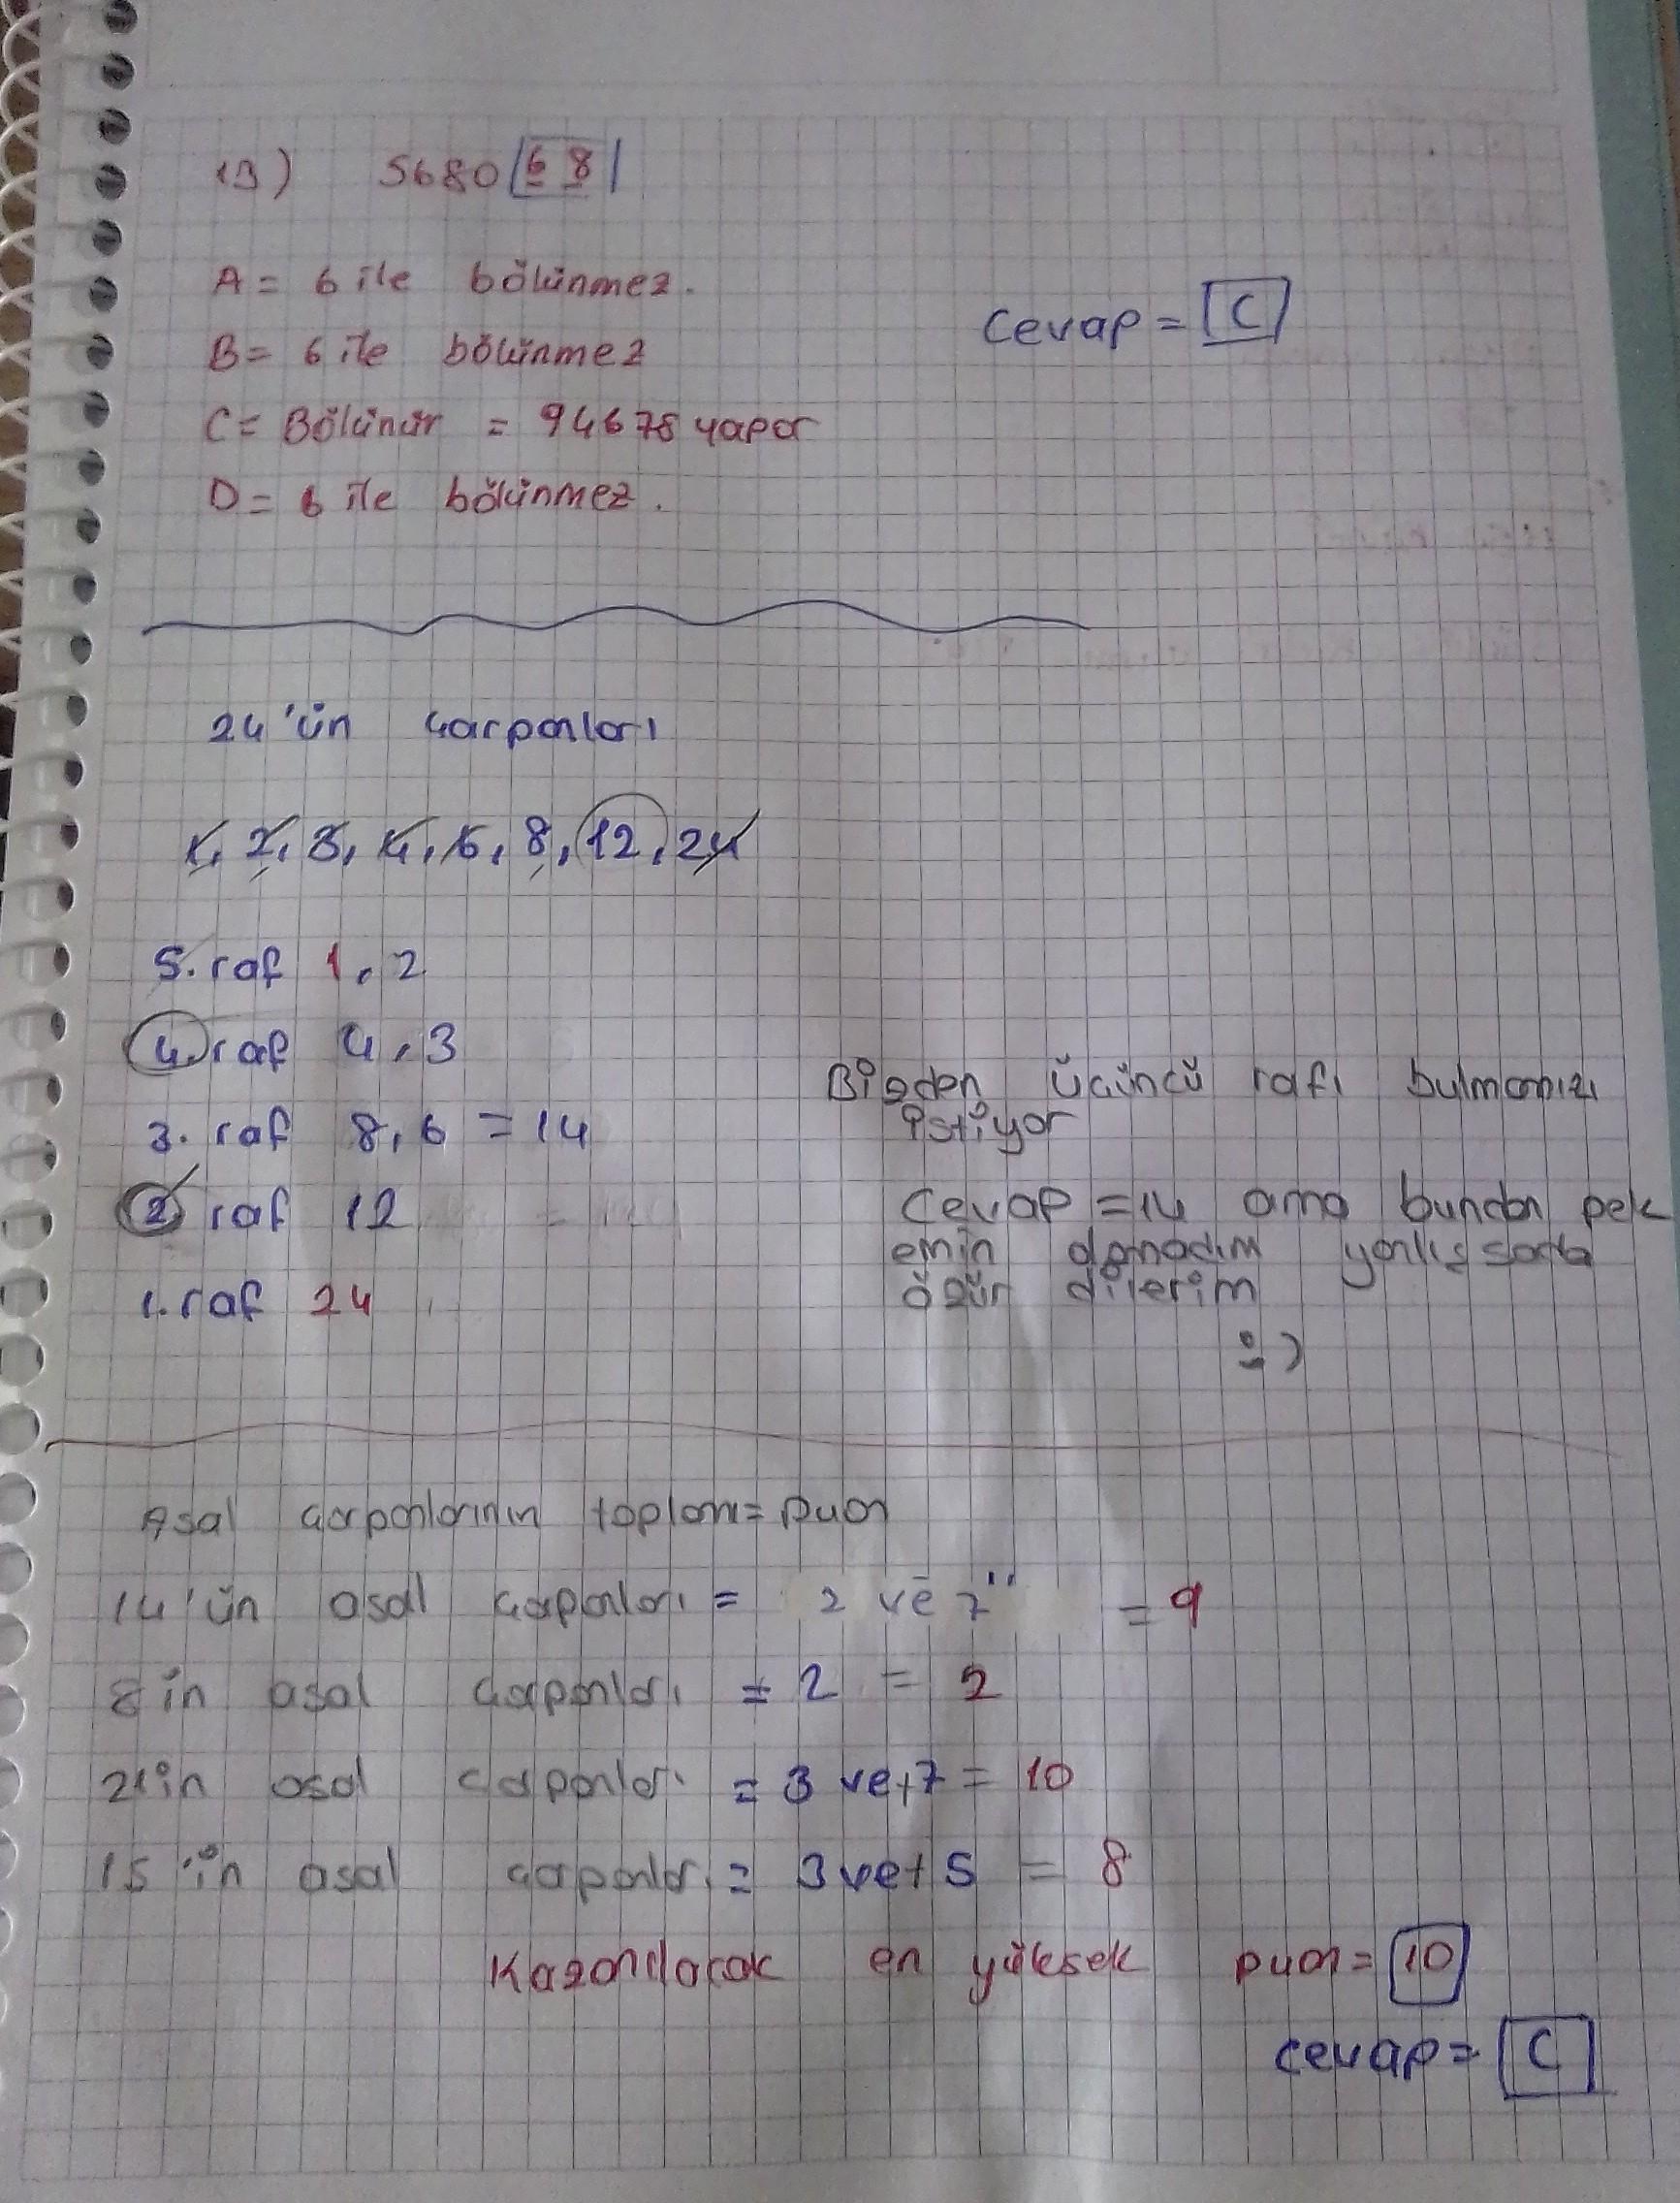 13) 5680 6 8
A = 6 ile bölünmez.
B = 6 ile bölünmez
C = Bölünür = 94678 yapar
D = 6 ile bölünmez.
Cevap = C
24'ün çarpanları
1, 2, 3, 4, 6, 8, 12, 24
5. raf 1, 2
4. raf 4, 3
3. raf 8, 6 = 14
2. raf 12
1. raf 24
Bizden üçüncü rafı bulmamızı
istiyor
Cevap = 14 ama bundan pek
emin olamadım yanlışsada
özür dilerim
:)
Asal çarpanlarının toplamı = puan
14'ün asal çarpanları = 2 ve 7 = 9
8 in asal çarpanları = 2 = 2
21 in asal çarpanları = 3 ve+7 = 10
15'in asal çarpanları = 3 ve+ 5 = 8
Kazanılacak en yüksek puan = 10
cevap = C